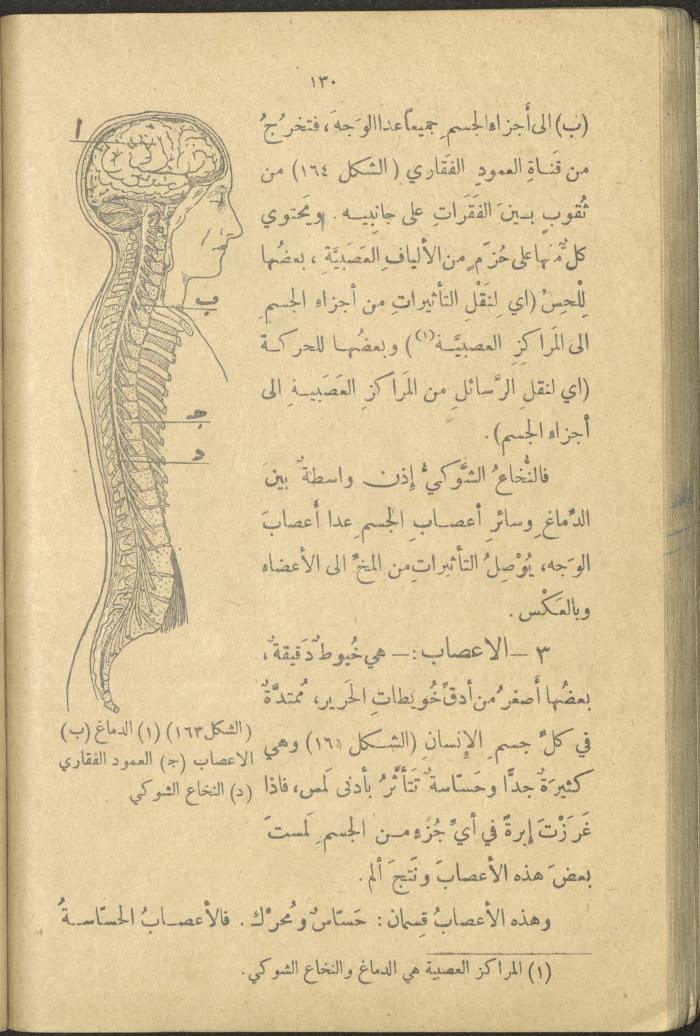 ١٣٠
(ب) الى أَجزاء الجسمِ جميعاً عدا الوَجهَ، فتخرُجُ
من قَناةِ العمودِ الفَقَاري (الشكل ١٦٤) من
ثُقوبٍ بينَ الفَقَراتِ على جانِبيه. ويَحتوي
كلٌّ منها على حُزَمٍ من الأليافِ العَصَبيَّةِ، بعضُها
لِلْحِسِّ (اي لِنَقْلِ التأثيراتِ من أجزاءِ الجسمِ
الى المَراكزِ العصبيَّة(١)) وبعضُها للحركة
(اي لنقلِ الرَّسائلِ من المَراكزِ العَصَبيةِ الى
أجزاءِ الجسم).
فالنُّخاعُ الشَّوكيُّ إِذن واسطةٌ بينَ
الدِّماغِ وسائرِ أعصابِ الجسمِ عدا أَعصابَ
الوَجه، يُوْصِلُ التأثيراتِ من المخِّ الى الأعضاء
وبالعَكْس.
٣ — الاعصاب: — هي خُيوطٌ دَقيقةٌ،
بعضُها أَصغرُ من أدقِّ خُوَيطاتِ الحَرير، مُمتدَّةٌ
في كلِّ جسمِ الإِنسانِ (الشكل ١٦٥) وهي
كثيرَةٌ جدًّا وحَسّاسةٌ تَتأثَّرُ بأدنى لَمس، فاذا
غَرَزْتَ إِبرةً في أيِّ جُزءٍ من الجسمِ لَمستَ
بعضَ هذه الأعصابَ ونَتَجَ ألم.
وهذه الأعصابُ قِسمان: حَسّاسٌ ومُحرِّك. فالأعصابُ الحَسّاسةُ
ا
ب
ج
د
(الشكل ١٦٣) (ا) الدماغ (ب)
الاعصاب (ج) العمود الفقاري
(د) النخاع الشوكي
(١) المراكز العصبية هي الدماغ والنخاع الشوكي.